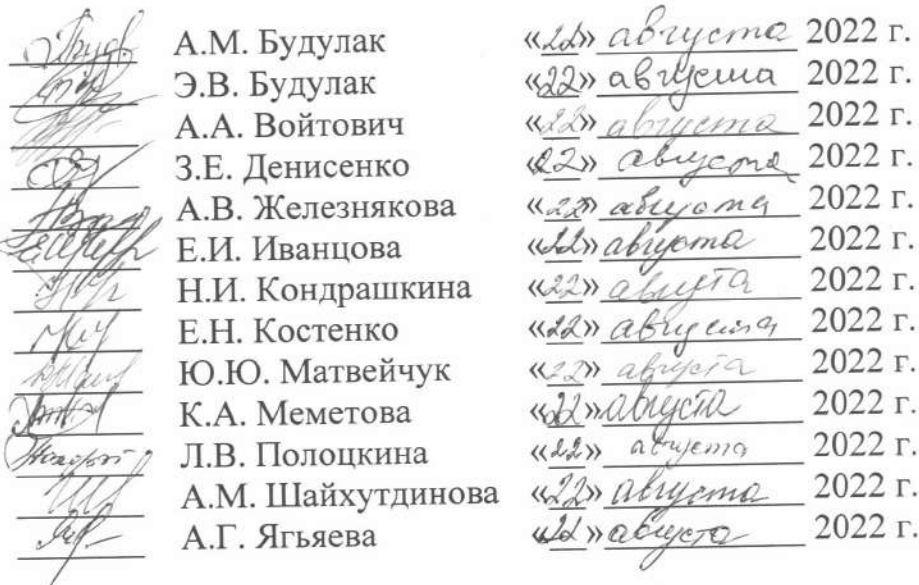 А.М. Будулак «22» августа 2022 г.
Э.В. Будулак «22» августа 2022 г.
А.А. Войтович «22» августа 2022 г.
З.Е. Денисенко «22» августа 2022 г.
А.В. Железнякова «22» августа 2022 г.
Е.И. Иванцова «22» августа 2022 г.
Н.И. Кондрашкина «22» августа 2022 г.
Е.Н. Костенко «22» августа 2022 г.
Ю.Ю. Матвейчук «22» августа 2022 г.
К.А. Меметова «22» августа 2022 г.
Л.В. Полоцкина «22» августа 2022 г.
А.М. Шайхутдинова «22» августа 2022 г.
А.Г. Ягьяева «22» августа 2022 г.